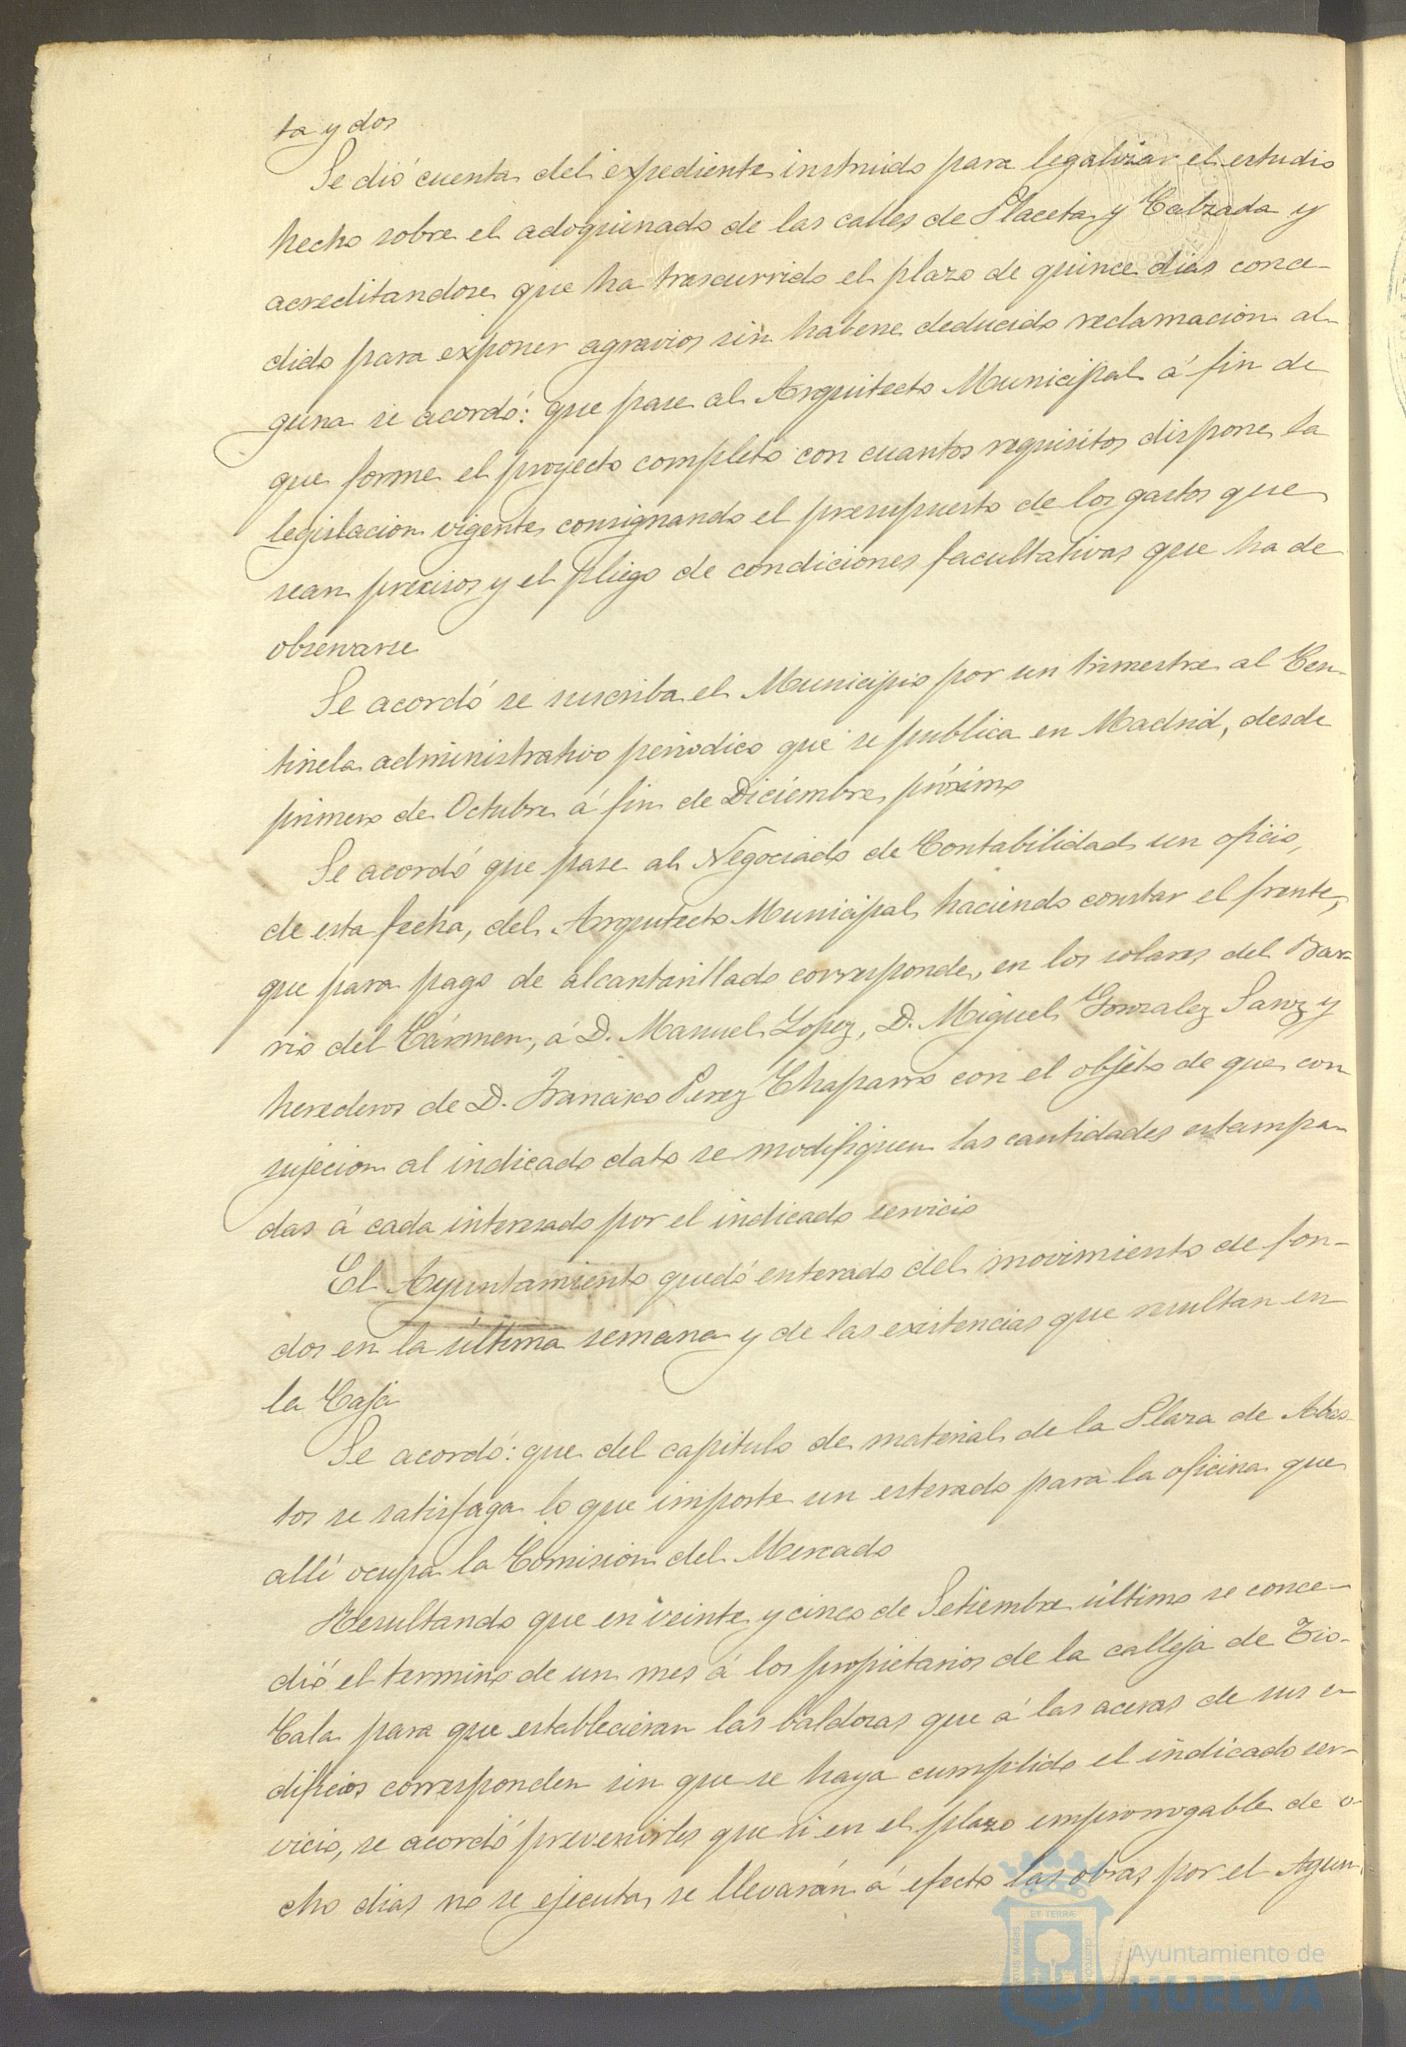 ta y dos
Se dió cuenta del expediente instruido para legalizar el estudio
hecho sobre el adoquinado de las calles de Placeta y Calzada y
acreditandose que ha trascurrido el plazo de quince dias conce-
dido para exponer agravios sin haberse deducido reclamacion al-
guna se acordó: que pase al Arquitecto Municipal á fin de
que forme el proyecto completo con cuantos requisitos dispone la
legislacion vigente consignando el presupuesto de los gastos que
sean precisos y el pliego de condiciones facultativas que ha de
observarse
Se acordó se suscriba el Municipio por un trimestre al Cen-
tinela administrativo periodico que se publica en Madrid, desde
primero de Octubre á fin de Diciembre próximo
Se acordó que pase al Negociado de Contabilidad un oficio,
de esta fecha, del Arquitecto Municipal haciendo constar el frente,
que para pago de alcantarillado corresponde, en los solares del Bar-
rio del Cármen, á D. Manuel Lopez, D. Miguel Gonzalez Sanz y
herederos de D. Francisco Perez Chaparro con el objeto de que con
sujecion al indicado dato se modifiquen las cantidades estampa-
das á cada interesado por el indicado servicio
El Ayuntamiento quedó enterado del movimiento de fon-
dos en la última semana y de las existencias que resultan en
la Caja
Se acordó: que del capitulo de material de la Plaza de Abas-
tos se satisfaga lo que importe un esterado para la oficina que
allí ocupa la Comision del Mercado
Resultando que en veinte y cinco de Setiembre último se conce-
dió el termino de un mes á los propietarios de la calleja de Tio-
Cala para que establecieran las baldosas que á las aceras de sus e-
dificios corresponden sin que se haya cumplido el indicado ser-
vicio, se acordó prevenirles que si en el plazo improrrogable de o-
cho dias no se ejecuta, se llevarán á efecto las obras por el Ayun-
ET TERRÆ
Ayuntamiento de
HUELVA